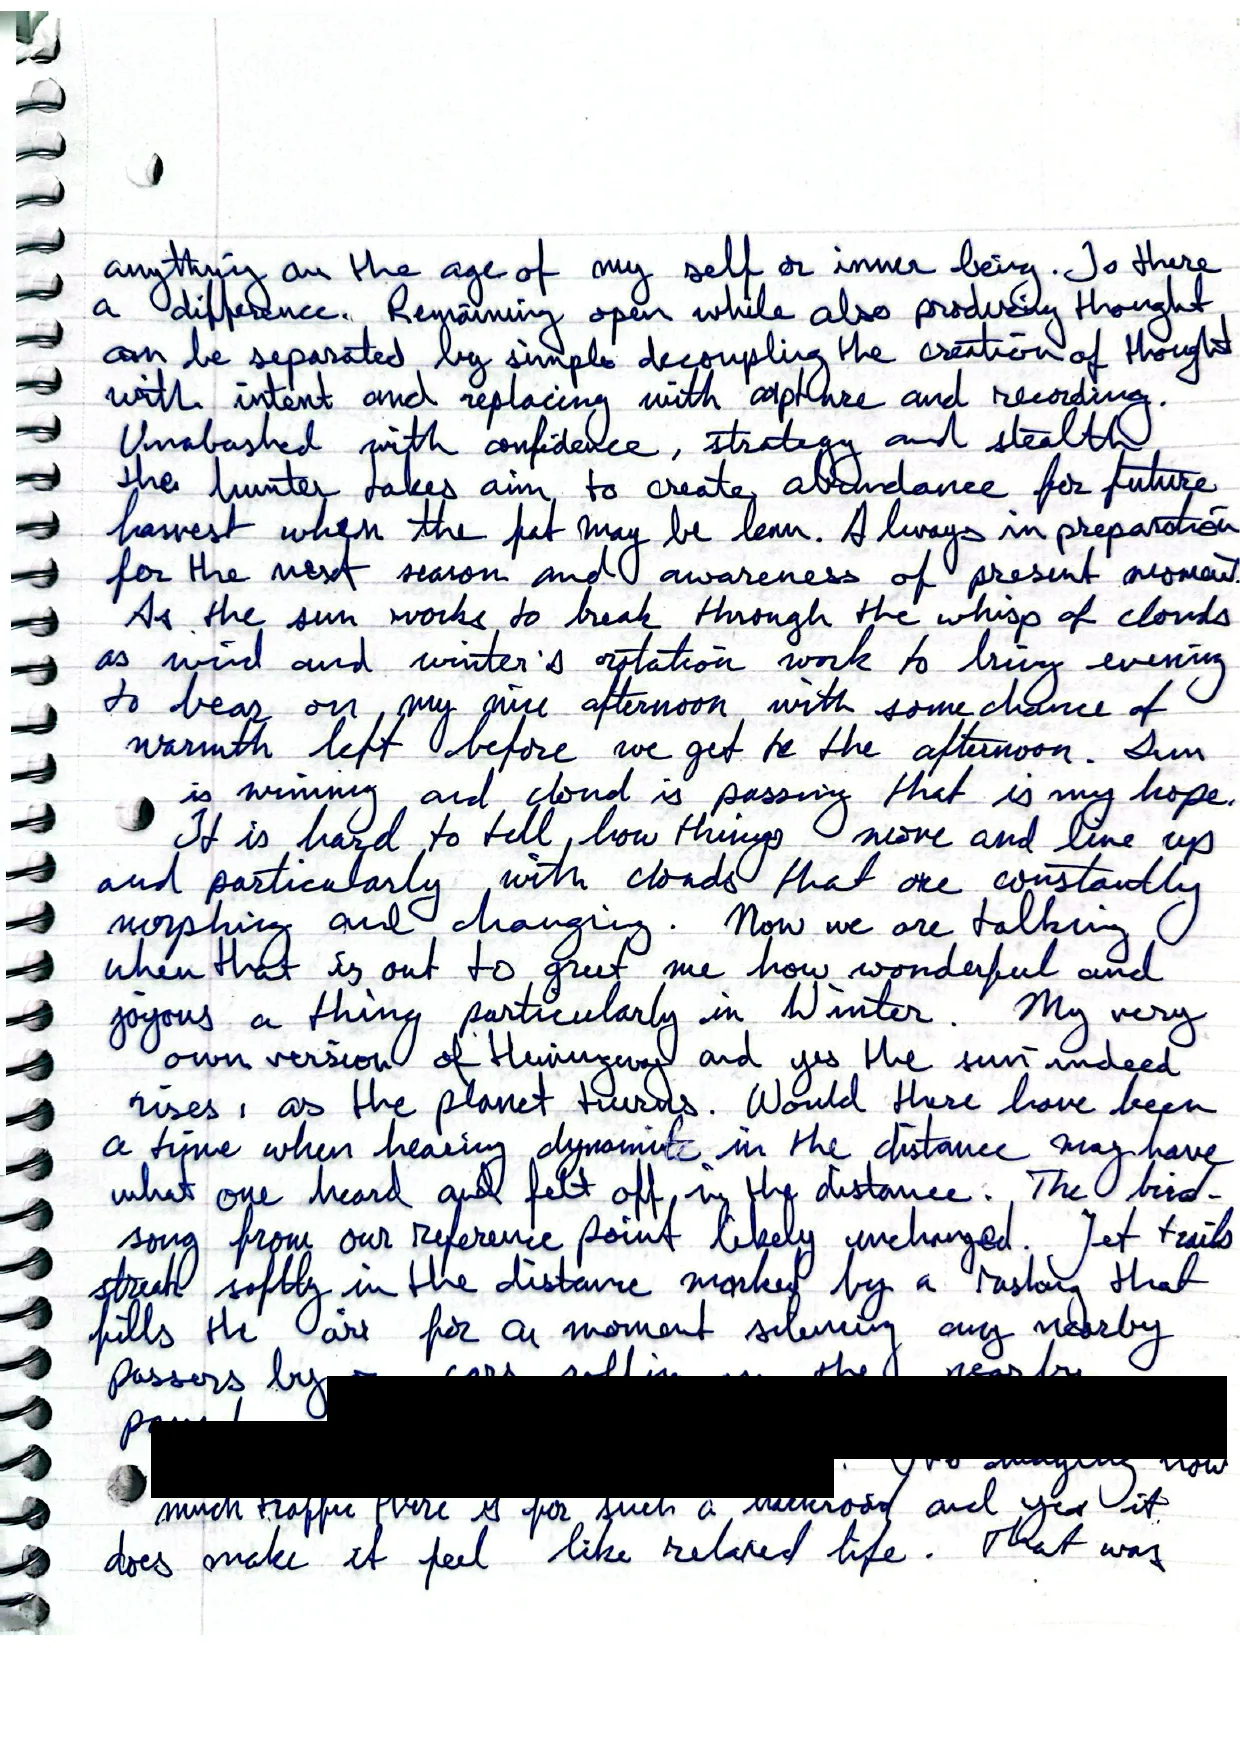 anything on the age of my self or inner being. Is there
a difference. Remaining open while also producing thought
can be separated by simple decoupling the creation of thought
with intent and replacing with capture and recording.
Unabashed with confidence, strategy and stealth
the hunter takes aim to create abundance for future
harvest when the fat may be lean. Always in preparation
for the next season and awareness of present moment.
As the sun works to break through the whisp of clouds
as wind and winter's rotation work to bring evening
to bear on my nice afternoon with some chance of
warmth left before we get to the afternoon. Sun
is winning and cloud is passing that is my hope.
It is hard to tell how things move and line up
and particularly with clouds that are constantly
morphing and changing. Now we are talking
when that is out to greet me how wonderful and
joyous a thing particularly in Winter. My very
own version of Hemingway and yes the sun indeed
rises, as the planet turns. Would there have been
a time when hearing dynamite in the distance may have
what one heard and felt off in the distance. The bird-
song from our reference point likely unchanged. Jet trails
streak softly in the distance marked by a that
fills the air for a moment silencing any nearby
passers by cars the nearby
how
much traffic there is for such a backroad and yes it
does make it feel like relaxed life. That was